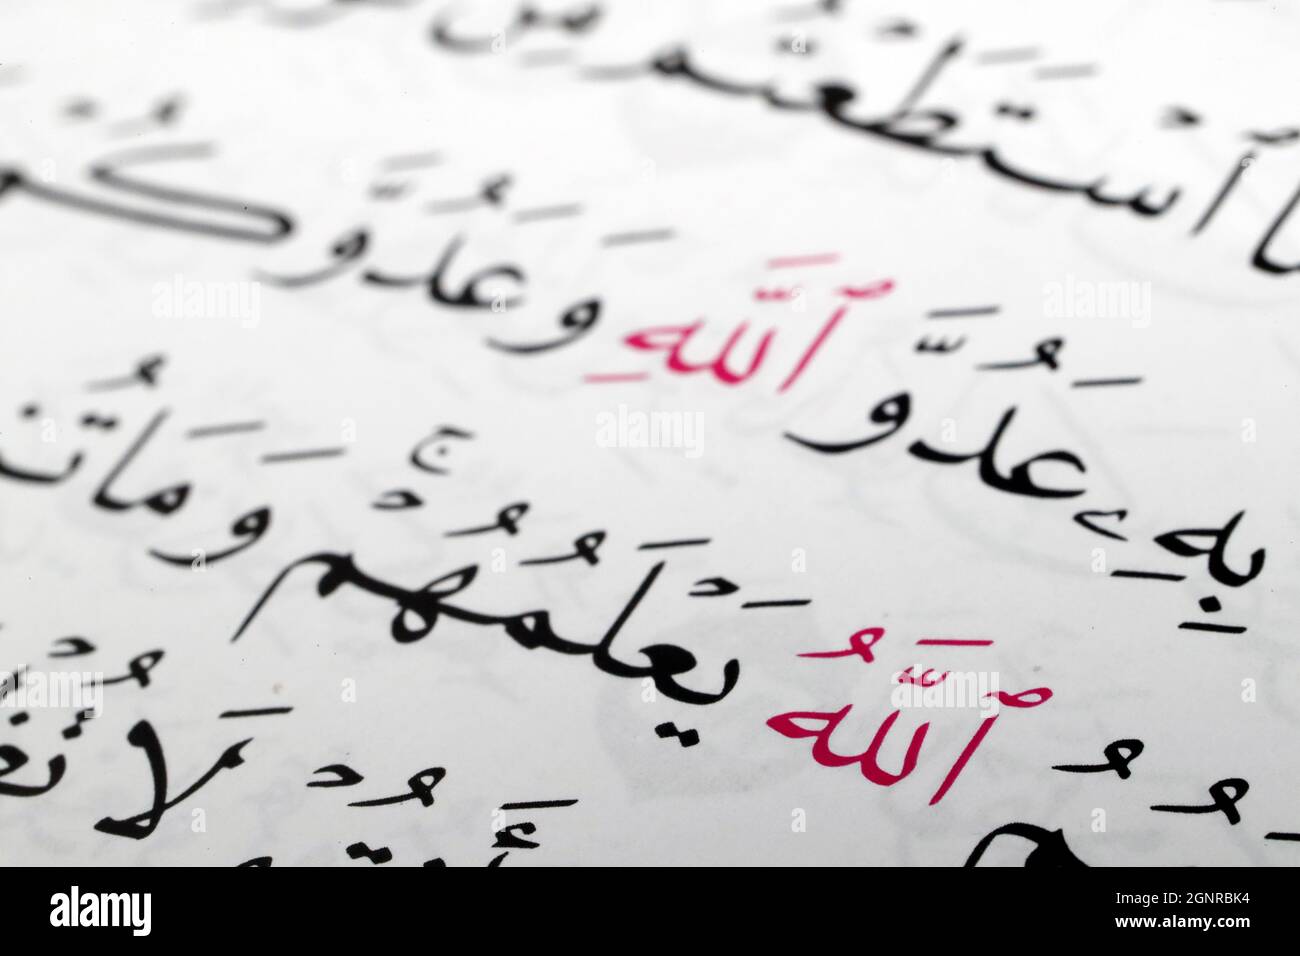 ٱسْتَطَعْتُم مِّن
بِهِۦ عَدُوَّ ٱللَّهِ وَعَدُوَّكُمْ
ٱللَّهُ يَعْلَمُهُمْ ۚ وَمَا
لَا
alamy
Image ID: 2GNRBK4
www.alamy.com